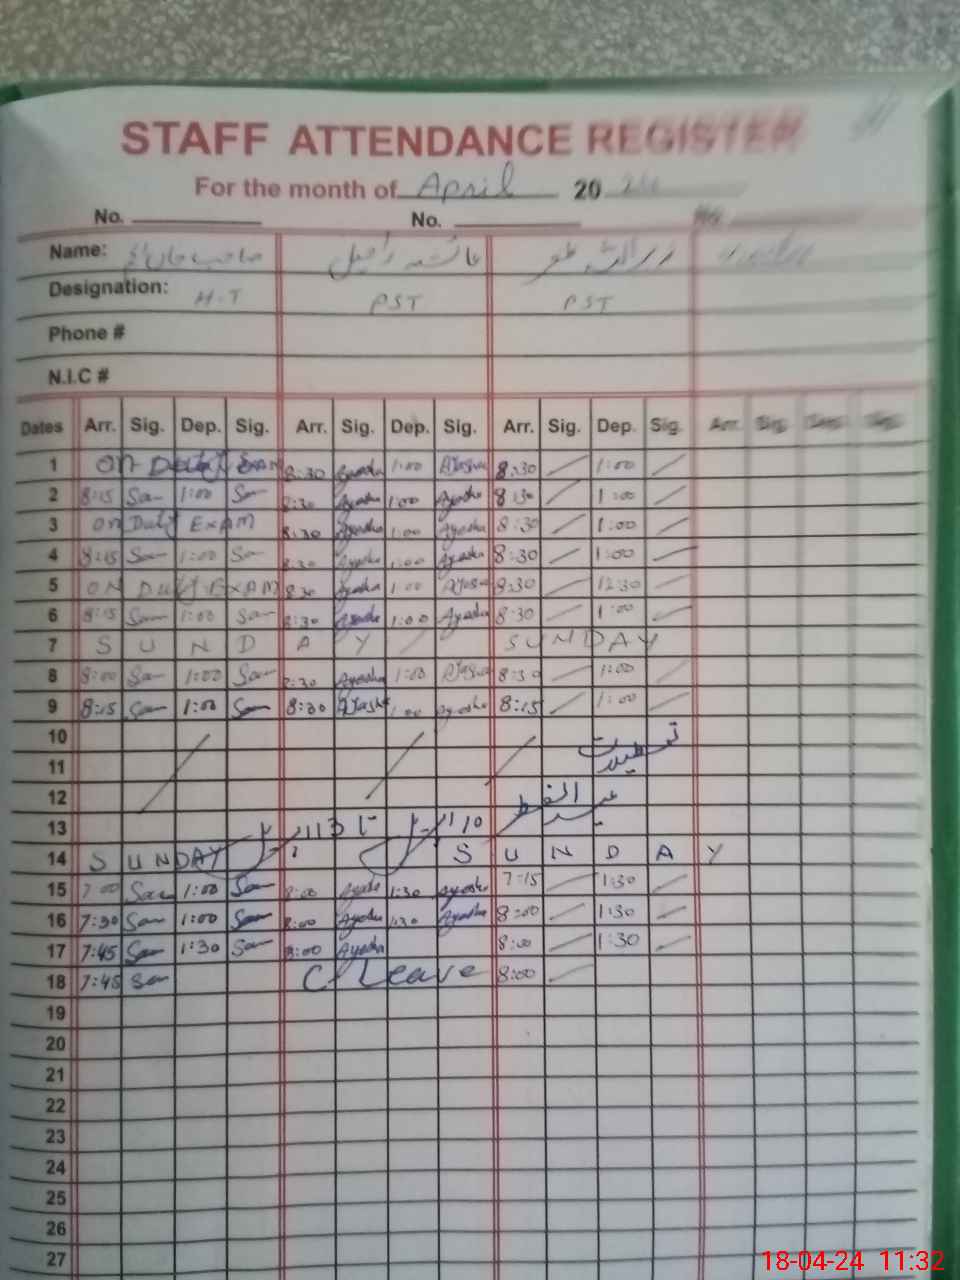 STAFF ATTENDANCE REGISTER
For the month of April 20 24
No. No. No.
Name: صاحب جان عائشہ راحیل
Designation: H-T PST PST
Phone #
N.I.C #
Dates Arr. Sig. Dep. Sig. Arr. Sig. Dep. Sig. Arr. Sig. Dep. Sig. Arr. Sig. Dep. Sig.
1 ON Duty EXAM 8:30 Ayesha 1:00 Ayesha 8:30 1:00
2 8:15 San 1:00 San 8:30 Ayesha 1:00 Ayesha 8:30 1:00
3 on Duty EXAM 8:30 Ayesha 1:00 Ayesha 8:30 1:00
4 8:15 San 1:00 San 8:30 Ayesha 1:00 Ayesha 8:30 1:00
5 ON DUTY EXAM 8:30 Ayesha 1:00 Ayesha 8:30 12:30
6 8:15 San 1:00 San 8:30 Ayesha 1:00 Ayesha 8:30 1:00
7 S U N D A Y SUNDAY
8 8:00 San 1:00 San 8:30 Ayesha 1:00 Ayesha 8:30 1:00
9 8:15 San 1:00 San 8:30 Ayesha 1:00 Ayesha 8:15 1:00
10 تعطیلات
11
12 عید الفطر
13 10 اپریل تا 13 اپریل
14 S U N D A Y S U N D A Y
15 7:00 San 1:00 San 8:00 Ayesha 1:30 Ayesha 7:15 1:30
16 7:30 San 1:00 San 8:00 Ayesha 1:30 Ayesha 8:00 1:30
17 7:45 San 1:30 San 8:00 Ayesha 8:00 1:30
18 7:45 San C Leave 8:00
19
20
21
22
23
24
25
26
27
18-04-24 11:32